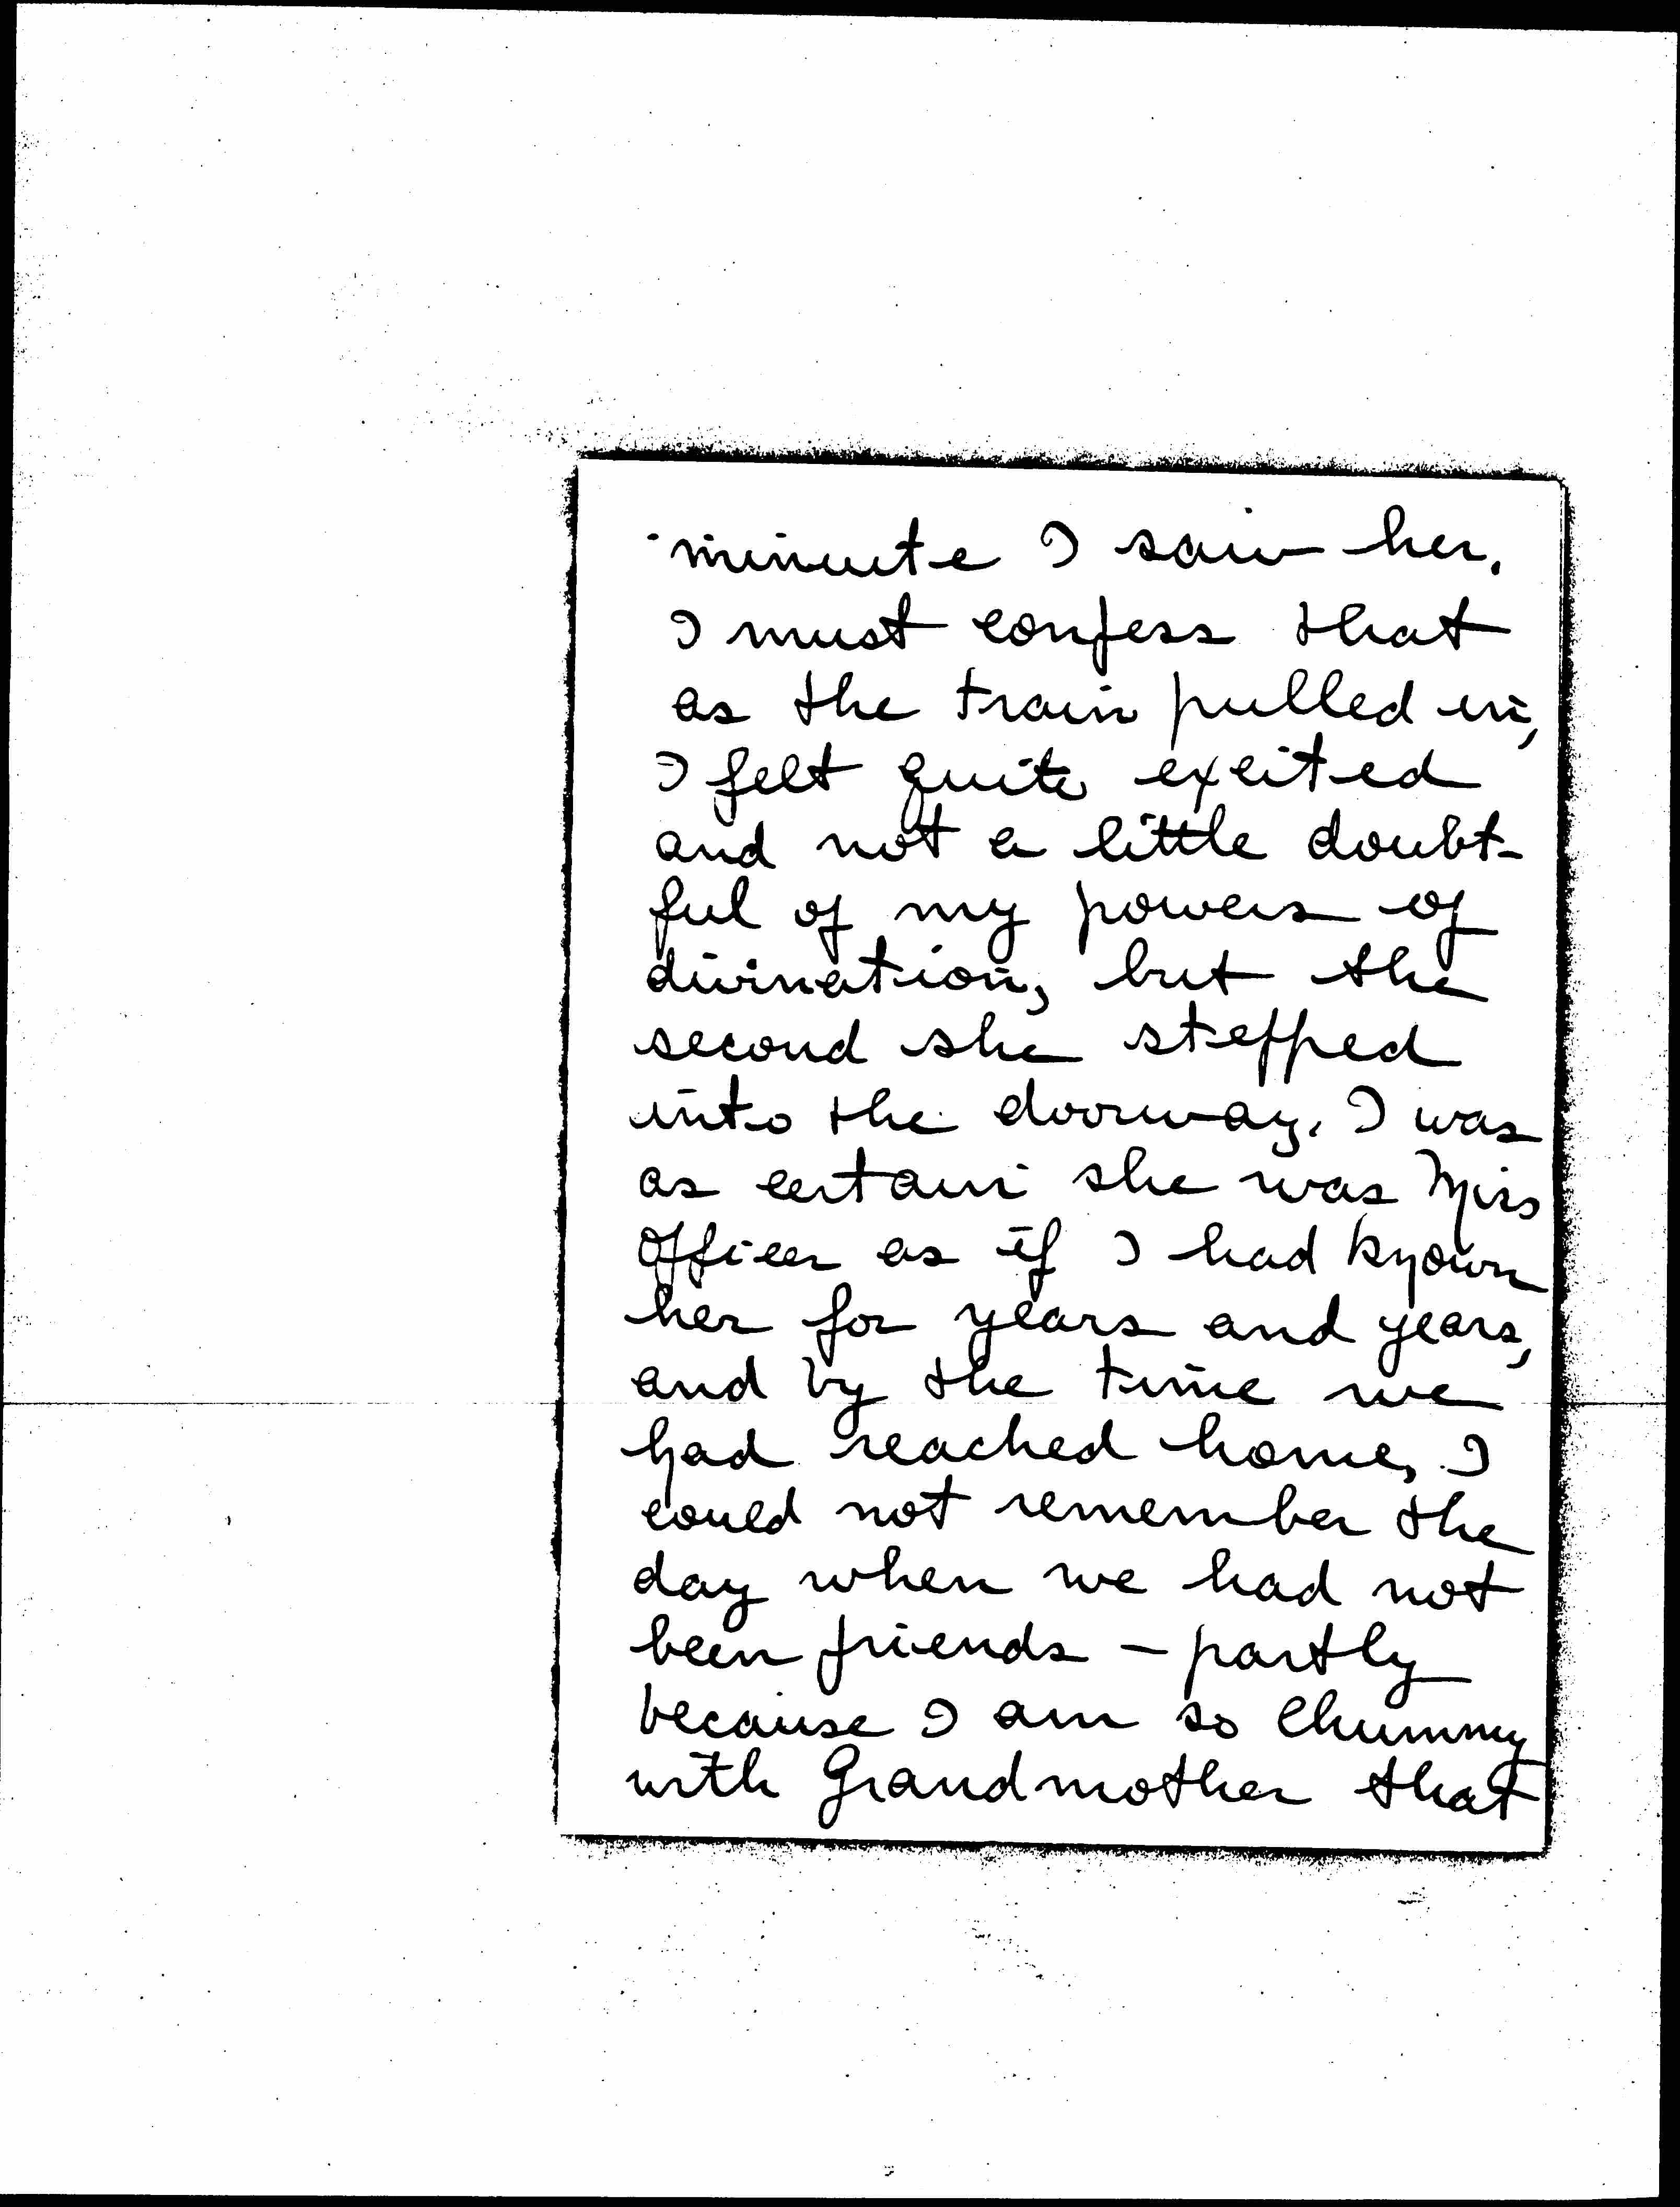 minute I saw her.
I must confess that
as the train pulled in,
I felt quite excited
and not a little doubt-
ful of my powers of
divination, but the
second she stepped
into the doorway, I was
as certain she was Miss
Officer as if I had known
her for years and years,
and by the time we
had reached home, I
could not remember the
day when we had not
been friends - partly
because I am so chummy
with Grandmother that